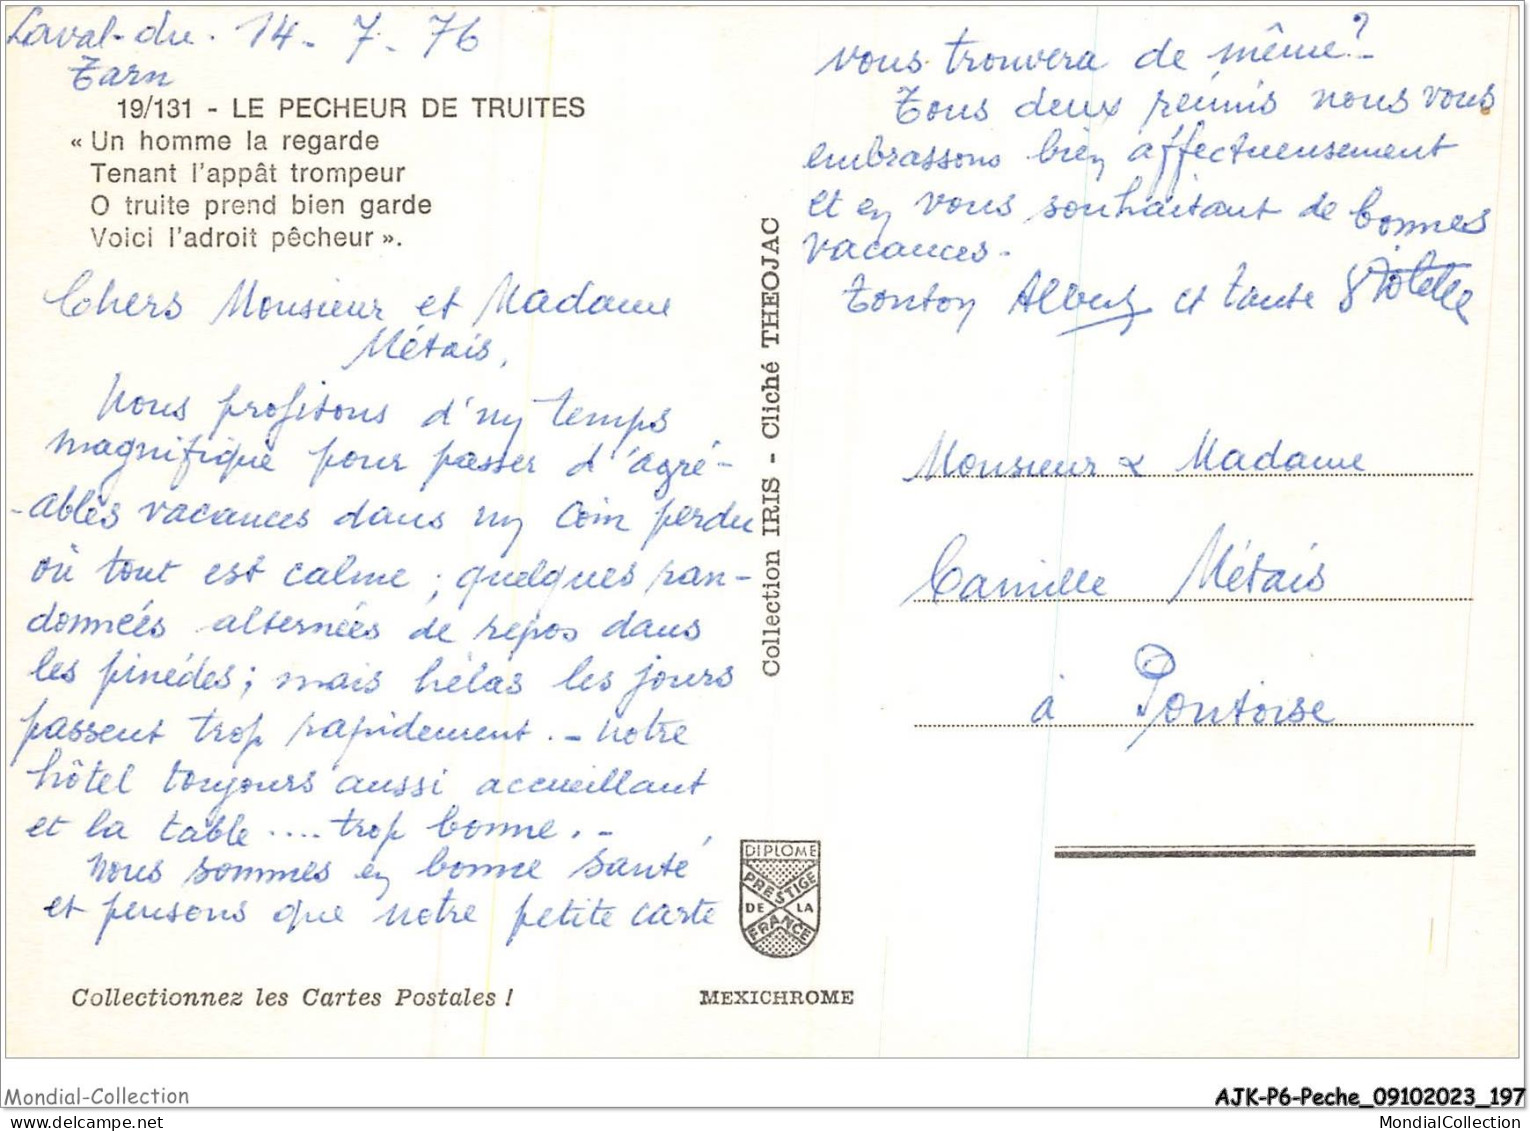 Laval-du. 14-7-76
Tarn
19/131 - LE PECHEUR DE TRUITES
« Un homme la regarde
Tenant l'appât trompeur
O truite prend bien garde
Voici l'adroit pêcheur ».
Chers Monsieur et Madame
Métais,
Nous profitons d'un temps
magnifique pour passer d'agré-
-ables vacances dans un coin perdu
où tout est calme ; quelques ran-
données alternées de repos dans
les pinèdes ; mais hélas les jours
passent trop rapidement. - Notre
hôtel toujours aussi accueillant
et la table .... trop bonne. -
Nous sommes en bonne santé
et pensons que notre petite carte
vous trouvera de même? -
Tous deux réunis nous vous
embrassons bien affectueusement
et en vous souhaitant de bonnes
vacances -
Tonton Albert et tante Violette
Monsieur & Madame
Camille Métais
à Pontoise
Collection IRIS - Cliché THEOJAC
DIPLOME
PRESTIGE
DE LA
FRANCE
Collectionnez les Cartes Postales !
MEXICHROME
Mondial-Collection
AJK-P6-Peche_09102023_197
mondial-collection.com
MondialCollection